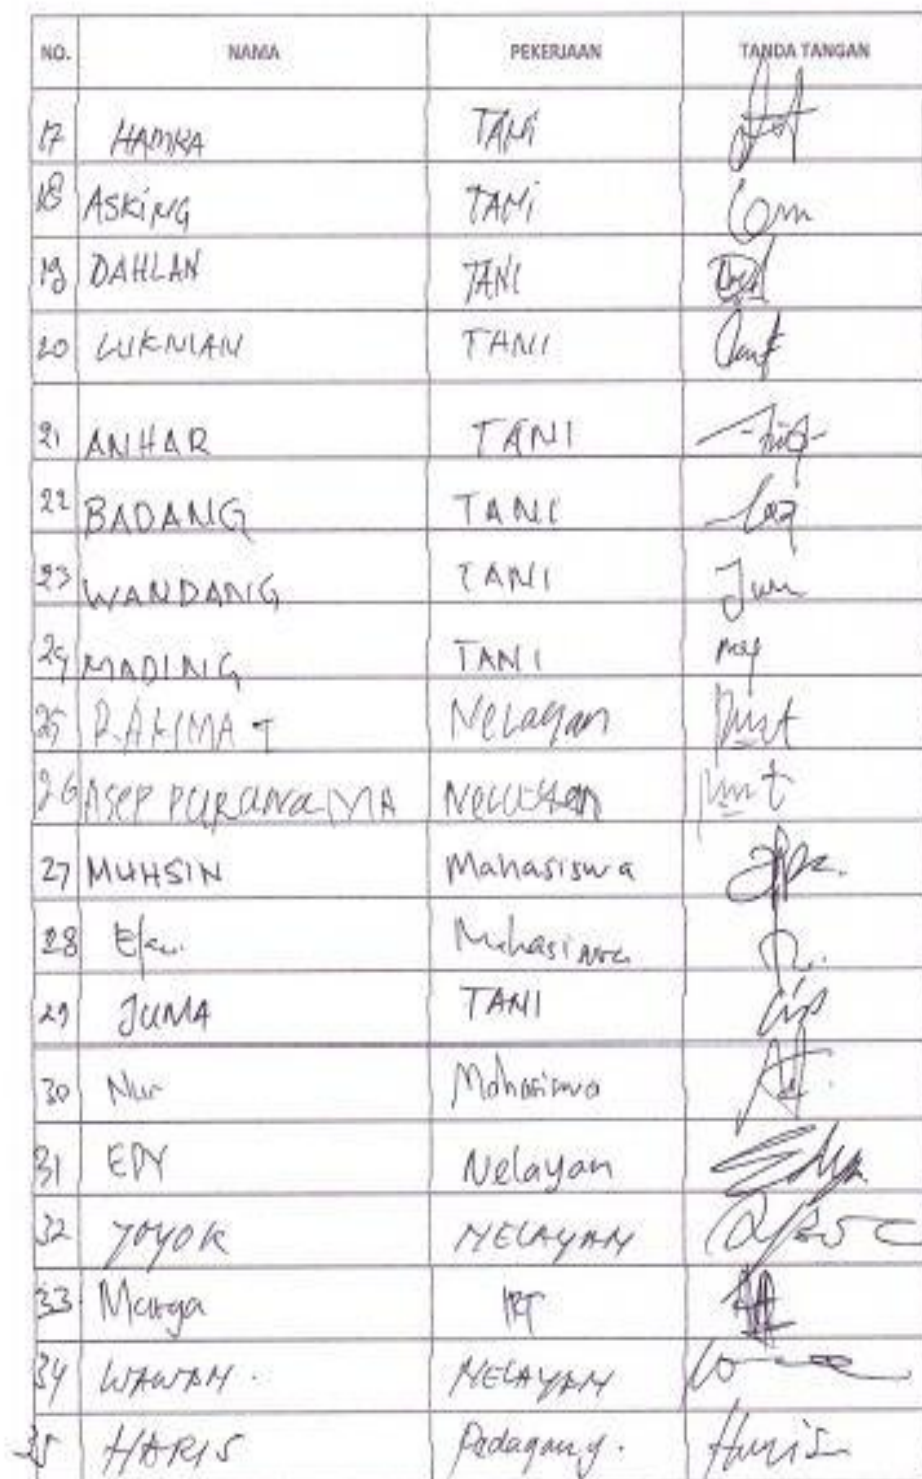 NO. NAMA PEKERJAAN TANDA TANGAN
17 HAMKA TANI
18 ASKING TANI
19 DAHLAN TANI
20 LUKMAN TANI
21 ANHAR TANI
22 BADANG TANI
23 WANDANG TANI
24 MADING TANI
25 Nelayan
26 ASEP PURANAMA Nelayan
27 MUHSIN Mahasiswa
28 Mahasiswa
29 JUMA TANI
30 Nur Mahasiswa
31 EDY Nelayan Edy
32 YOYOK NELAYAN
33 Marga IRT
34 WAWAN. NELAYAN
35 HARIS Padagang. Haris